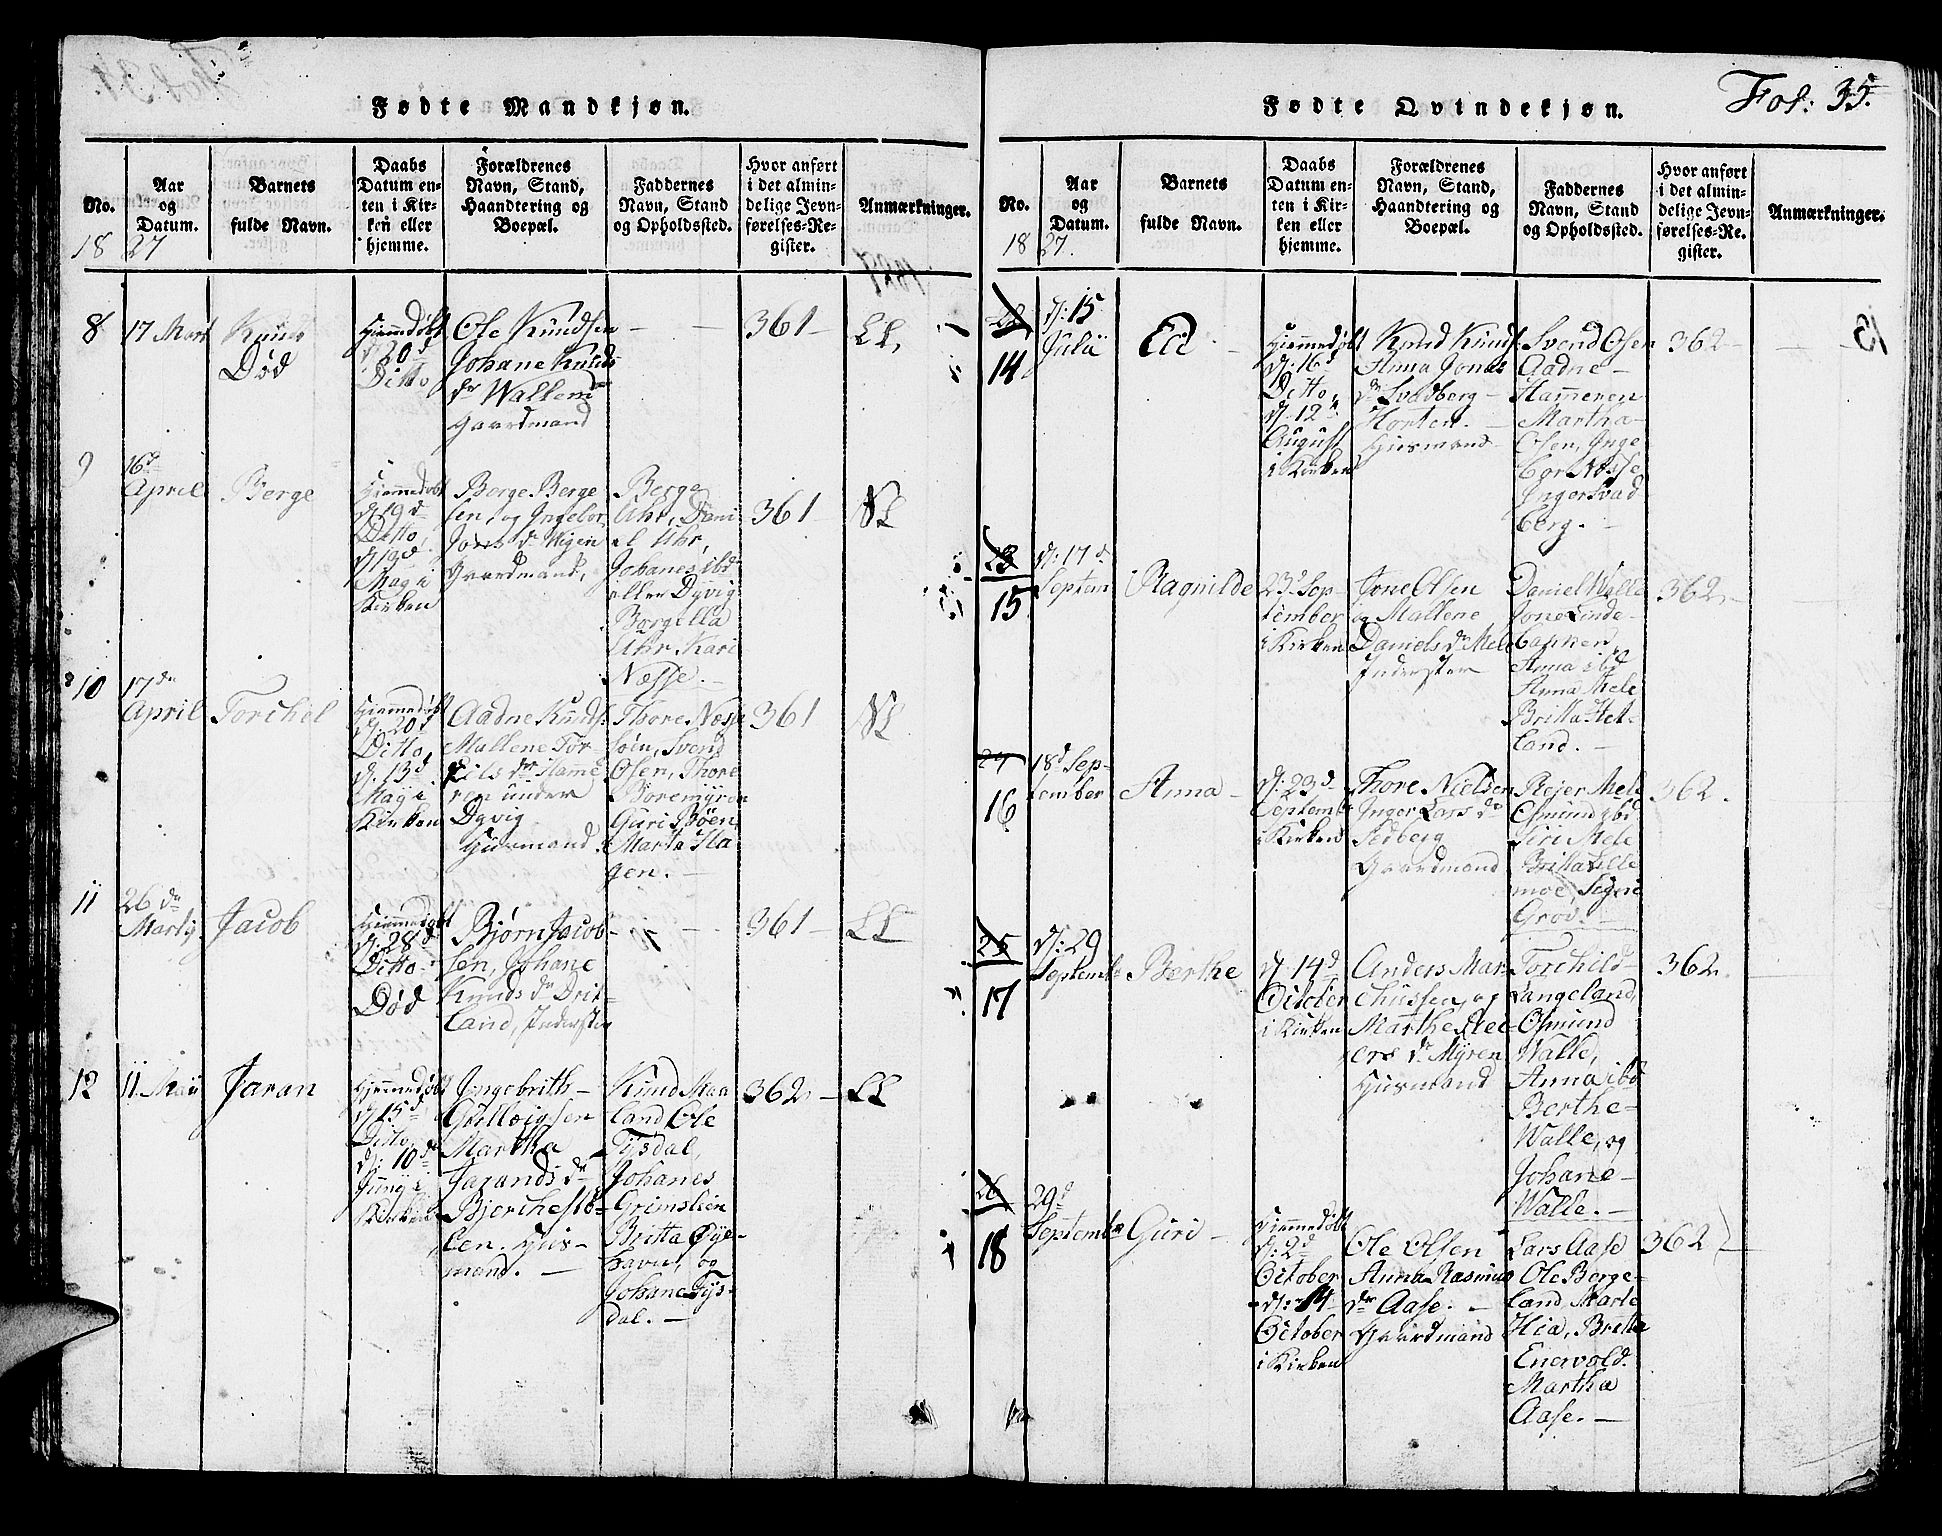 Fol: 35.
Fødte Mandkjøn.
No.
Aar og Datum.
Barnets fulde Navn.
Daabs Datum enten i Kirken eller hjemme.
Forældrenes Navn, Stand, Haandtering og Boepæl.
Faddernes Navn, Stand og Opholdssted.
Hvor anført i det almindelige Jevnførelses-Register.
Anmærkninger.
1827
8
17 Mart
Død
Hiemmedøbt
d: 20d
Ditto
Ole Knudsen
Johane Knuds
dr Wallem
Gaardmand
361
9
16d
April
Berge
Hiemmedøbt
d: 19d
Ditto,
Kirken
Berge Berge
sen, og Ingebor
Gaardmand,
Berge
Uhr, Dani
el Uhr,
Johanes ibd
eller Dyvig
Borgilla
Uhr Kari
Næsse.
361
10
17de
April
Torchel
Hiemmedøbt
d: 20d
Ditto,
d: 13d
May i
Kirken
Aadne Knuds
Mallene Tor
dr Hamme
ren under
Dyvig
Huusmand
Thore Næss
Svend
Osen, Thore
Guri Bøen
Marta Ha
gen.
361
11
26de
Marty
Jacob
Hiemmedøbt
d: 28d
Ditto
Død
Bjørn Jacob
sen, Johane
Knuds dr Drit
land, Inderster
361
12
11 Maii
Jaran
Hiemmedøbt
d: 15d
Ditto,
d: 10d
Juny i
Kirken
Ingebrith
Martha
Jarands dr
Bjerchesto
len. Huus
mand.
Knud Maa
land Ole
Tysdal,
Johanes
Grimslien
Britta Øye
havn, og
Johane Tys
dal.
362
Fødte Qvindekjøn.
No.
Aar og Datum.
Barnets fulde Navn.
Daabs Datum enten i Kirken eller hjemme.
Forældrenes Navn, Stand, Haandtering og Boepæl.
Faddernes Navn, Stand og Opholdssted.
Hvor anført i det almindelige Jevnførelses-Register.
Anmærkninger.
1827.
14
d: 15
Julii
Eli
Hiemmedøbt
d: 16d
Ditto,
d: 12
August
i Kirken
Knud Knuds
Anna Jonas
dr Svadberg
Horten.
Huusmand
Svend Osen
Aadne
Hammeren
Martha
Osen, Inge
bor Næsse
Inger Svad
berg.
362
15
d: 17d
Septem
Ragnilde
23d Sep
tember
i Kirken
Jone Olsen
og Mallene
Daniels dr Mele
Inderster
Daniel Walle
Jone Linde
Anna ibd
Anna Mele
Britta Het
land.
362
16
18d Sep
tember
Anna
d: 23d
Septemb
i Kirken
Thore Nielsen
Inger Lars dr
Sedberg
Gaardmand
Rejer Mele
Osmund ibd
Siri Mele
Britta Lille
moe, Signi
Grov.
362
17
d: 29
Septembr
Berthe
d: 14d
October
i Kirken
Anders Mar
chussen, og
Marthe Rei
ers dr Myren
Huusmand
Torchild
Langeland,
Osmund
Walle,
Anna ibd
Berthe
Walle, og
Johane
Walle.
362
18
29d
Septembr
Guri
Hiemmedøbt
d: 2d
October
d: 14
October
i Kirken
Ole Olsen
Anna Rasmus
dr Aase.
Gaardmand
Lars Aase
Ole Berge
land, Marte
Hia, Britta
Enervold
Martha
Aase.
362